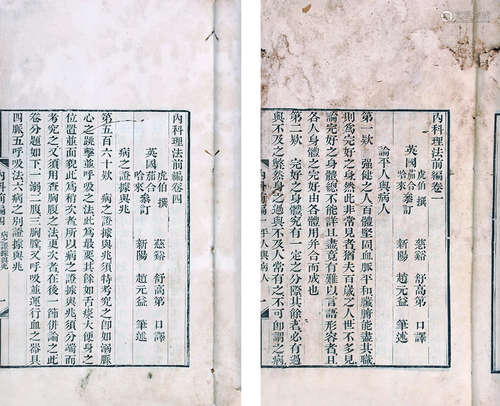 內科理法前編卷一
虎伯 撰 慈谿 舒高第 口譯
英國 茄合 參訂
哈來 新陽 趙元益 筆述
論平人與病人
第一款 強健之人百體堅固血脈平和臟腑能盡其職
則為完好之身然此非常見者猶夫百歲之人世不多見
論完好之身體總不能詳且盡竟有難以言語形容者且
各人身體之完好由各體用并合而成也
第二款 完好之身體究有一定之分際其餘者必有過
與不及之弊然身之過與不及人常有之不可卽謂之病
平人與病人 一
內科理法前編卷四
虎伯 撰 慈谿 舒高第 口譯
英國 茄合 參訂
哈來 新陽 趙元益 筆述
病之證據與兆
第五百六十款 病之證據與兆須特考究之卽如溺脈
心之跳擊並呼吸之法此為最要其餘如舌痰大便身之
位置並面貌此為稍次者所以病之證據與兆須分端而
考究之又須用查胸腹之法更次者在後一節併論之此
卷分題如下一溺二腹三胸膛又呼吸並運行血之器具
四脈五呼吸法六病之別證據與兆
病之證據與兆 一